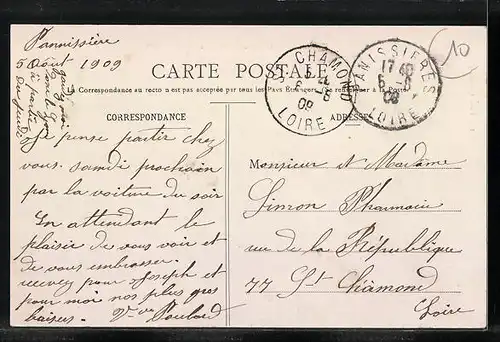 Pannissière
5 Août 1909
CARTE POSTALE
La Correspondance au recto n'est pas acceptée par tous les Pays Étrangers. (Se renseigner à la Poste)
CORRESPONDANCE
ADRESSE
ST CHAMOND
LOIRE
09
PANISSIERES
17 40
6 - 8
09
LOIRE
10
à partir
Du jeudi
Je pense partir chez
vous samdi prochain
par la voiture du soir
En attendant le
plaisir de vous voir et
de vous embrasser.
recevez pour Joseph et
pour moi nos plus gros
baisers. Vve Poulard
Monsieur et Madame
Simon Pharmacie
rue de la République
77 St Chamond
Loire